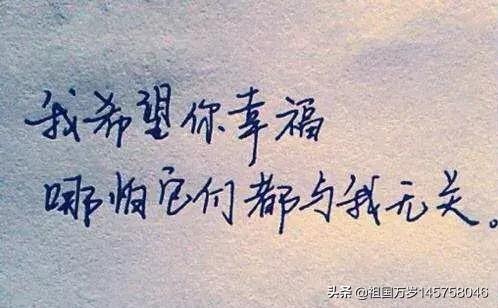 我希望你幸福
哪怕它们都与我无关。
头条 @祖国万岁145758046